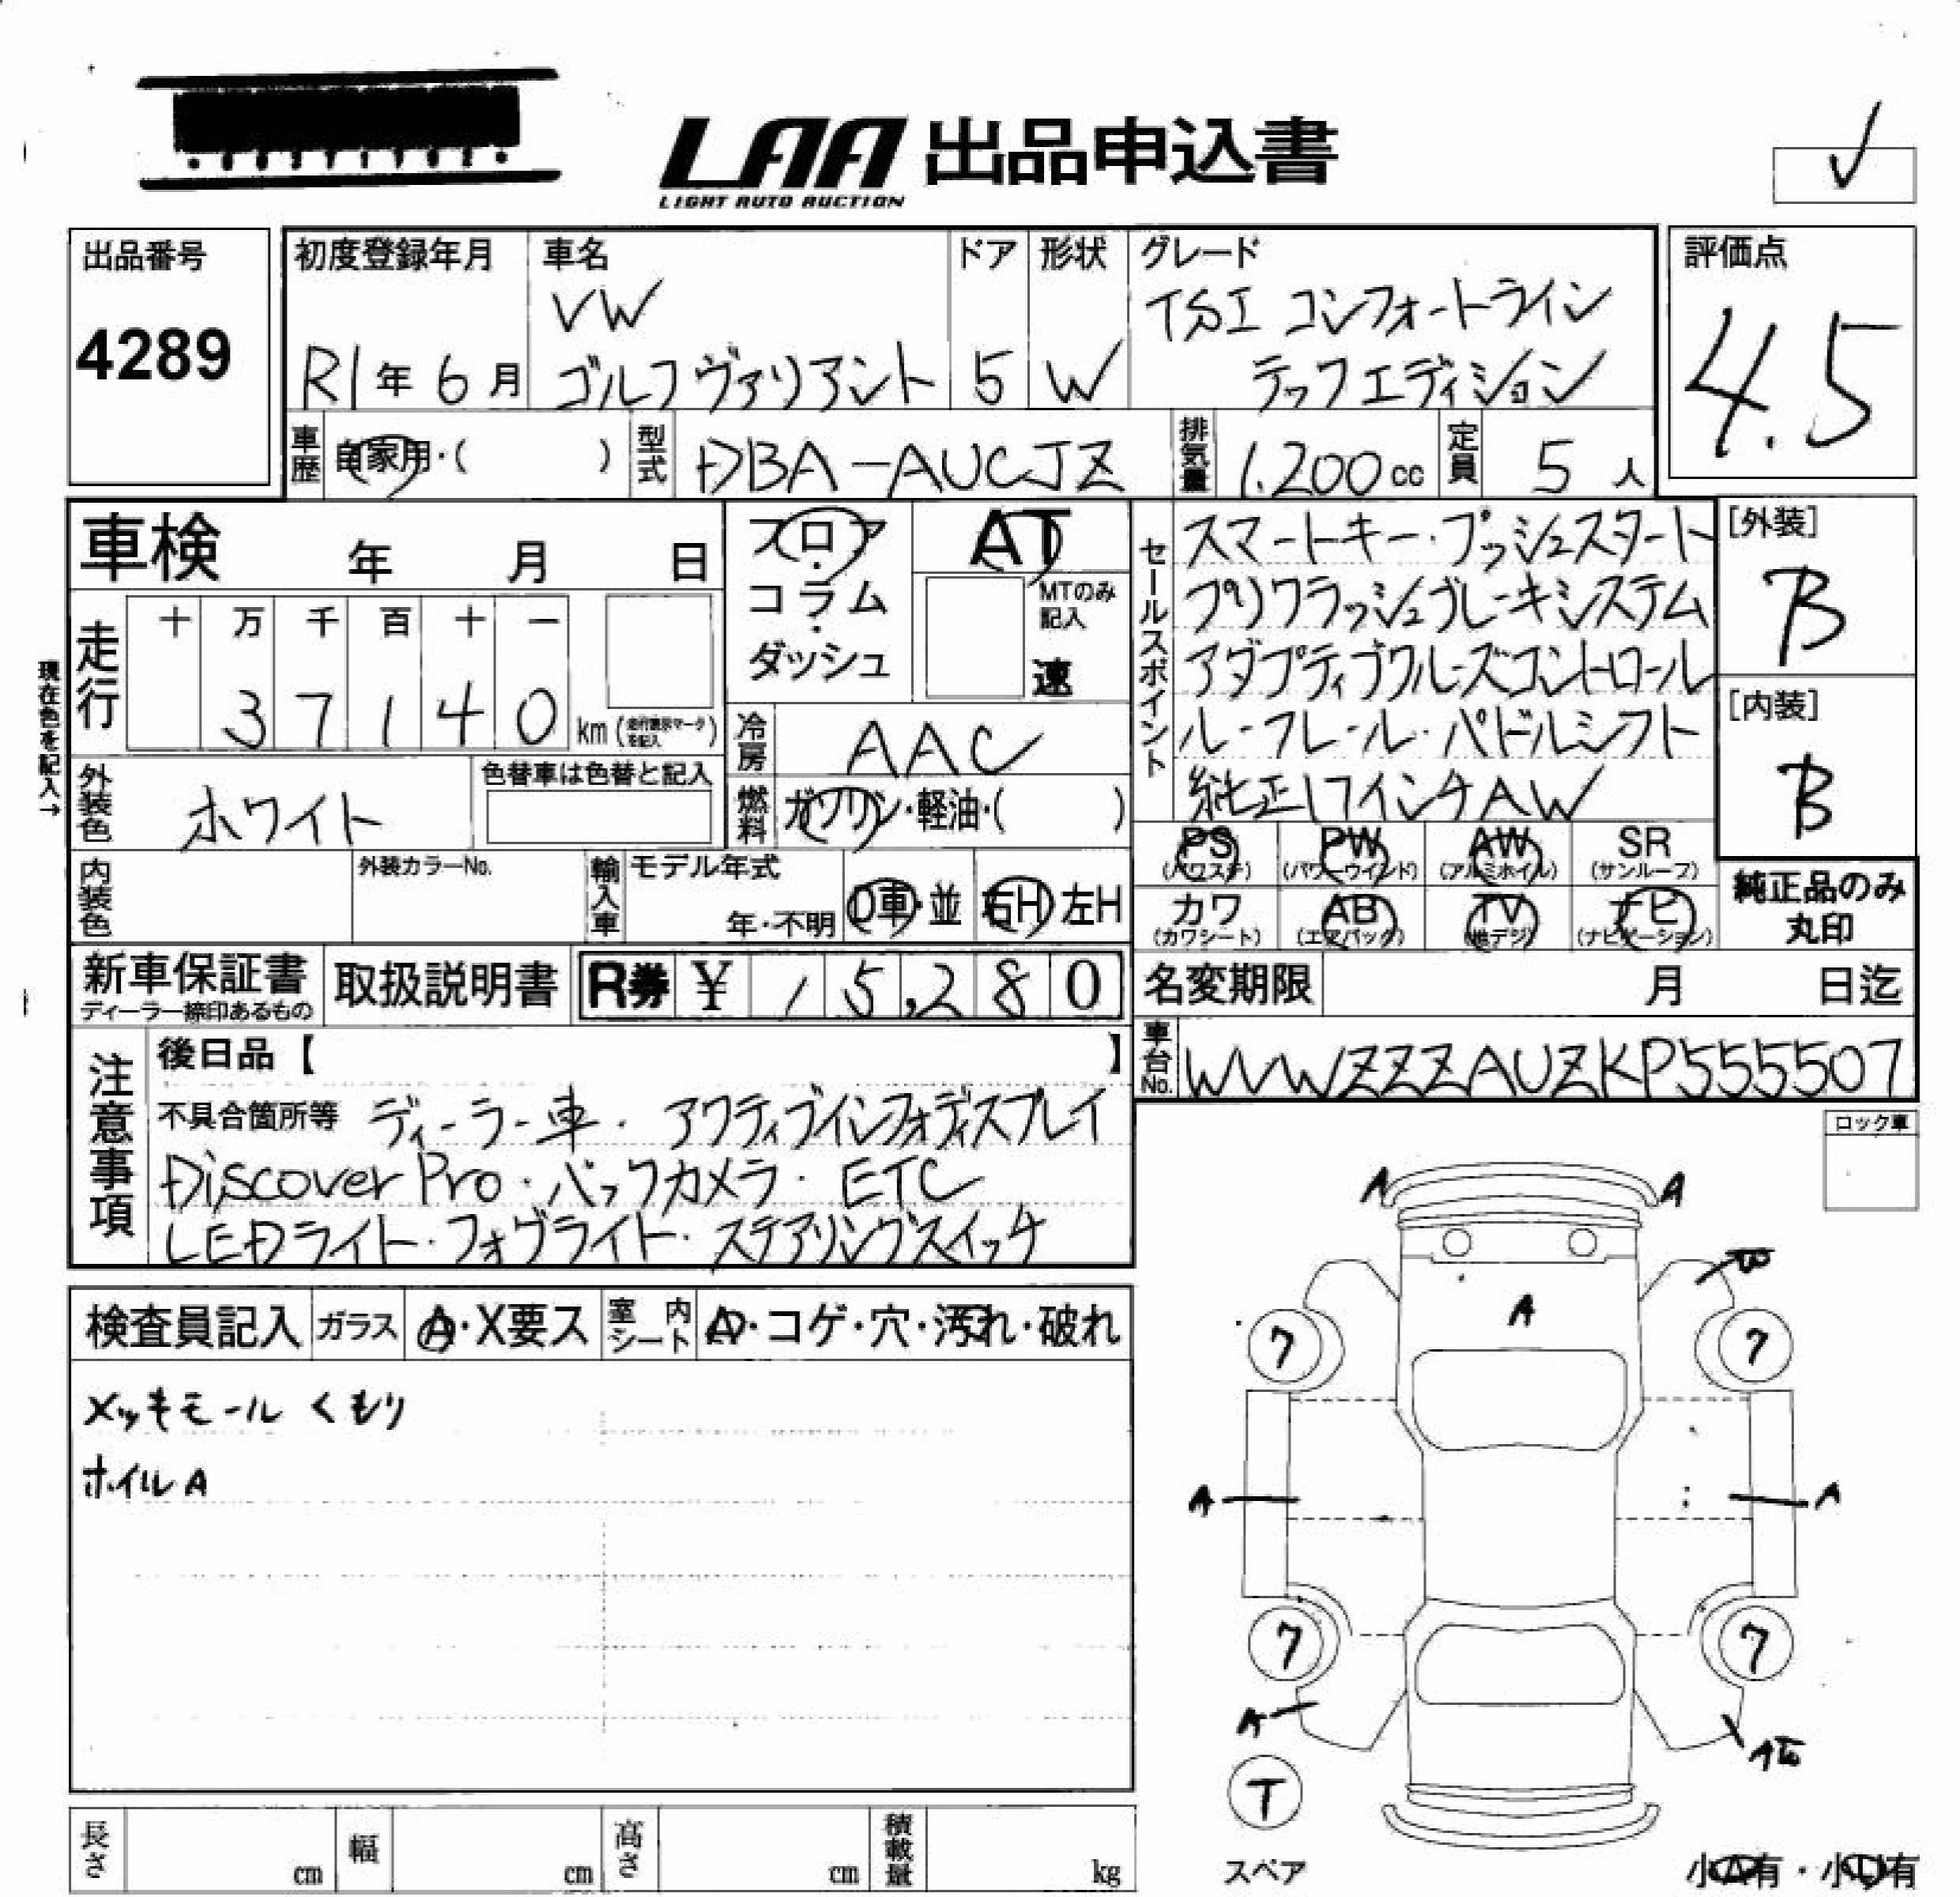 LAA 出品申込書
LIGHT AUTO AUCTION
出品番号
4289
初度登録年月
R1年6月
車名
VW
ゴルフヴァリアント
ドア
5
形状
W
グレード
TSI コンフォートライン
テックエディション
評価点
4.5
車歴
自家用・( )
型式
DBA-AUCJZ
排気量
1.200cc
定員
5人
車検 年 月 日
フロア・コラム・ダッシュ
AT
MTのみ記入
速
セールスポイント
スマートキー・プッシュスタート
プリクラッシュブレーキシステム
アダプティブクルーズコントロール
ルーフレール・パドルシフト
純正17インチAW
[外装]
B
[内装]
B
現在色を記入→
走行
十 万 千 百 十 一
3 7 1 4 0 km (走行表示マークを記入)
冷房
AAC
外装色
ホワイト
色替車は色替と記入
燃料
ガソリン・軽油・( )
PS (パワステ)
PW (パワーウインド)
AW (アルミホイル)
SR (サンルーフ)
カワ (カワシート)
AB (エアバック)
TV (地デジ)
ナビ (ナビゲーション)
純正品のみ丸印
内装色
外装カラーNo.
輸入車
モデル年式
年・不明
D車・並
右H 左H
新車保証書
ディーラー捺印あるもの
取扱説明書
R券 ¥ 15,280
名変期限 月 日迄
車台No.
WVWZZZAUZKP555507
注意事項
後日品【 】
不具合箇所等 ディーラー車・アクティブインフォディスプレイ
Discover Pro・バックカメラ・ETC
LEDライト・フォグライト・ステアリングスイッチ
ロック車
検査員記入
ガラス
A・X要ス
室内シート
A・コゲ・穴・汚れ・破れ
メッキモール くもり
ホイルA
A A
W
A
7 7
A A
7 7
A
T
スペア
長さ cm
幅 cm
高さ cm
積載量 kg
小A有・小U有